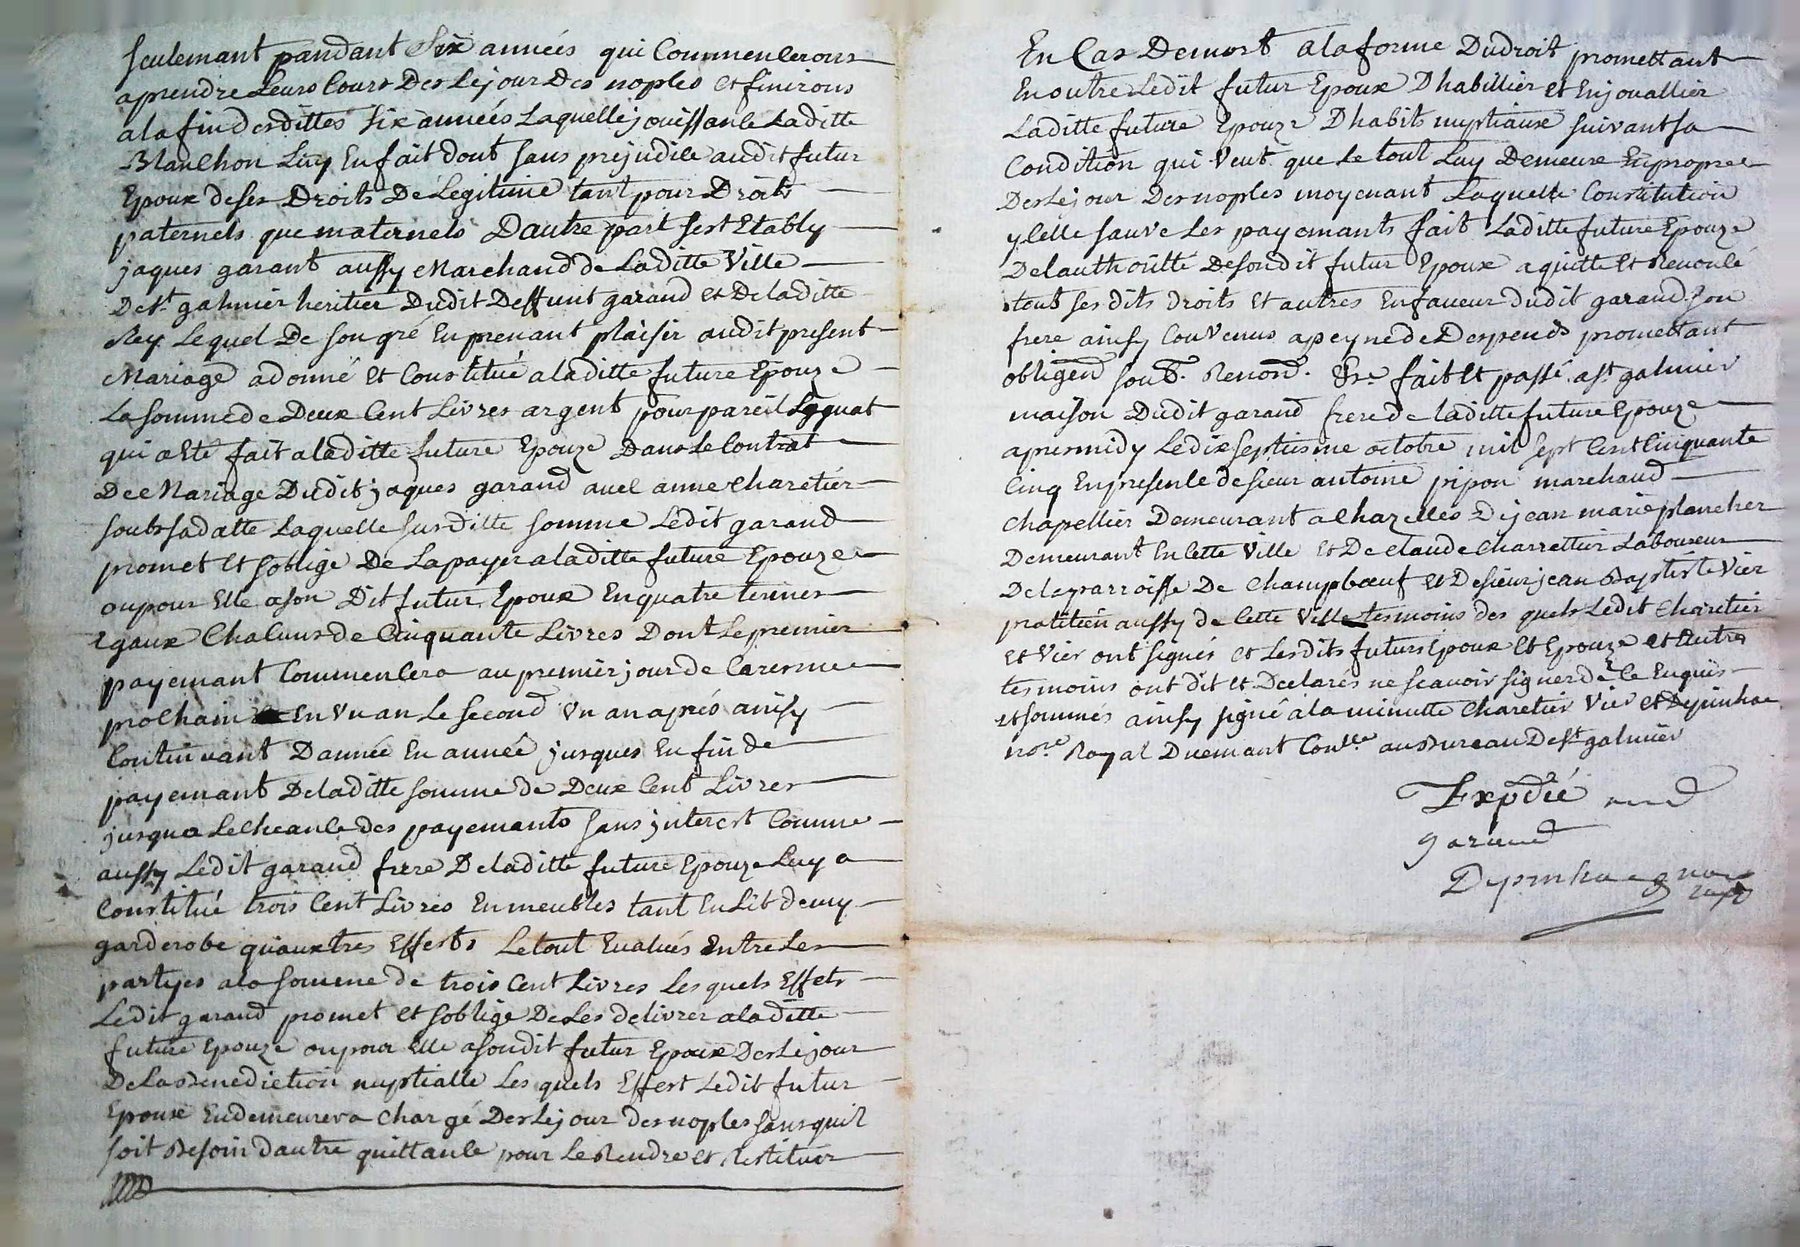 seulemant pandant Six années qui Commencerons
aprendre Leurs Cours Des Lejour Des noples et finirons
ala fin desdittes Six années Laquelle jouissance Laditte
Blanchon Luy En fait dont Sans prejudice audit futur
Epoux deses Droits De Legitime tant pour Droits
paternels que maternels D'autre part sest Etably
jaques garant aussy Marchand de Laditte Ville
De st galmier heritier Dudit Deffunt garand et Deladitte
Rey Lequel De son gré En prenant plaisir audit present
Mariage adonné et Constitué aladitte future Epouze
La somme de Deux Cent Livres argent pour pareil Legat
qui a Eté fait aladitte future Epouze Dans Le Contrat
De Mariage Dudit jaques garand avec anne Charetier
soubs sa datte Laquelle sus ditte somme Ledit garand
promet et soblige De La payer aladitte future Epouze
ou pour Elle ason Dit futur Epoux En quatre termes
Egaux Chacuns de Cinquante Livres Dont Le premier
payemant Commencera au premier jour de Caresme
prochain En Vn an Le second Vn an aprés ainsy
Continuant Dannée En année jusques En fin de
payemant Deladitte somme de Deux Cent Livres
jusqua Lecheance des payemants sans jnterest Comme
aussy Ledit garand frere Deladitte future Epouze Luy a
Constitué trois Cent Livres En meubles tant En Lit demy
garderobe quauxtres Effects Le tout Evalués Entre Les
partyes ala somme de trois Cent Livres Les quels Effets
Ledit garand promet et soblige De Les delivrer aladitte
future Epouze ou pour Elle asondit futur Epoux Des Le jour
De La Benediction nuptialle Les quels Effest Ledit futur
Epoux En demeurera Chargé Des Lejour des noples sans quil
soit Besoin dautre quittance pour Le Rendre et Restituer
En Cas Demort ala forme Dudroit promettant
En outre Ledit futur Epoux Dhabillier et Enjouallier
Laditte future Epouze Dhabits nuptiaux suivant sa
Condition qui Veut que Le tout Luy Demeure En propre
Des Lejour Des noples moyenant Laquelle Constitution
ycelle sauve Les payemants fait Laditte future Epouze
Delauthoritte Desondit futur Epoux aquitte et Renoncé
tout ses dits droits et autres En faveur dudit garand son
frere ainsy Convenus apeyne de Despends promettant
obligend soub. Renond. fait et passé ast galmier
maison Dudit garand frere de laditte future Epouze
apresmidy Le dix septieme octobre mil sept Cent Cinquante
Cinq En presence de sieur antoine pipon marchand
Chapellier Demeurant achazelles Dejean marie plancher
Demeurant En Cette Ville et De Claude Charrettier Laboureur
De la parroisse De Champboeuf et De sieur jean Baptiste Vier
pratitien aussy de Cette Ville tesmoins des quels Ledit Charetier
et Vier ont signés et Lesdits futurs Epoux et Epouze et autres
tesmoins ont dit et Declarés ne scavoir signer de Ce Enquis
et sommés ainsy signé ala minutte Charetier Vier et
note Royal Duemant Conlle au Bureau De st galmier
Expdié
garand